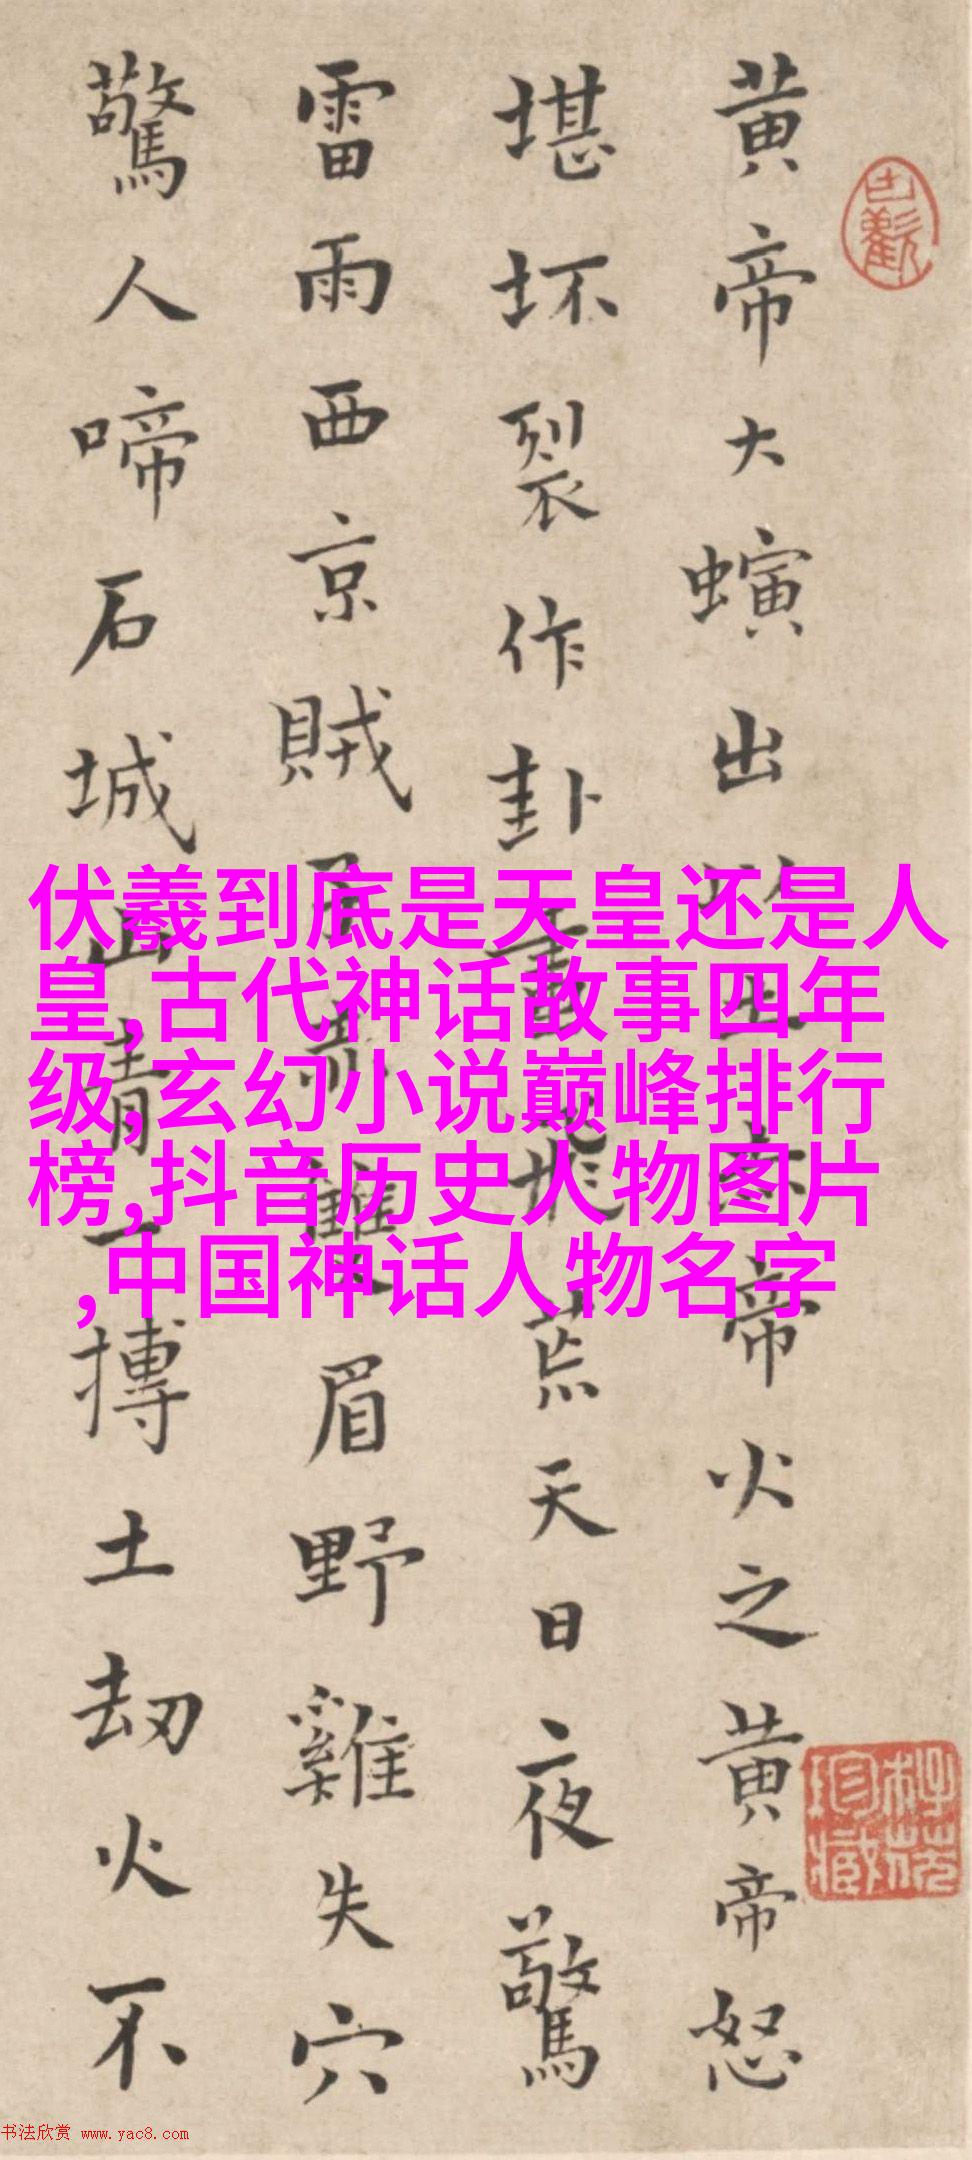 黄帝大螾出土赤帝火之黄帝怒
堪坏裂作卦飛荒天日夜驚
雷雨西京賊子赤眉野雞失穴
驚人啼石城山青一摶土劫火不
伏羲到底是天皇还是人
皇,古代神话故事四年
级,玄幻小说巅峰排行
榜,抖音历史人物图片
,中国神话人物名字
书法欣赏 www.yac8.com